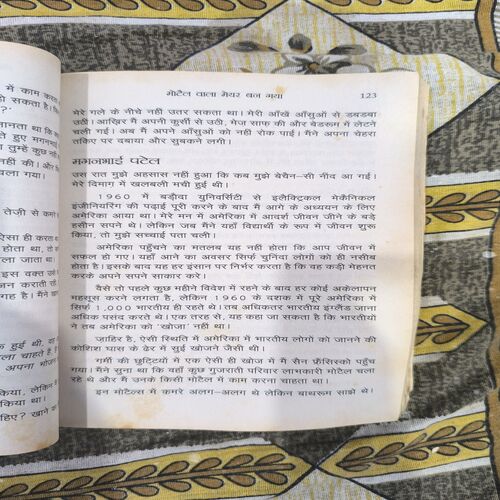 में काम करना
हो सकता है।
जानता था कि
ते हुए मगनभाई
नहीं की। और
वाला गया।
तेज़ी से कमरे
ऐसा ही करता
होता था, तो
इस वक़्त उसे
जन कराती
गह है। मैंने खाने
हूँ थी, या
ला चाहते हैं,
अपना भोजन
किया, लेकिन
किया था।
हिए? खाने प
मोटॅल वाला मेयर बन गया 123
मेरे गले के नीचे नहीं उतर सकता था। मेरी आँखें आँसुओं से डबडबा
उठीं। आख़िर मैं अपनी कुर्सी से उठी, मेज़ साफ़ की और बेडरूम में लेटने
चली गई। अब मैं अपने आँसुओं को नहीं रोक पाई। मैंने अपना चेहरा
तकिए पर दबाया और सुबकने लगी।
मगनभाई पटेल
उस रात मुझे अहसास नहीं हुआ कि कब मुझे बेचैन-सी नींद आ गई।
मेरे दिमाग में खलबली मची हुई थी।
1960 में बड़ौदा युनिवर्सिटी से इलेक्ट्रिकल मेकैनिकल
इंजीनियरिंग की पढ़ाई पूरी करने के बाद मैं आगे के अध्ययन के लिए
अमेरिका आया था। मेरे मन में अमेरिका में आदर्श जीवन जीने के बड़े
हसीन सपने थे। लेकिन जब मैंने यहाँ विद्यार्थी के रूप में जीवन शुरू
किया, तो मुझे सच्चाई पता चली।
अमेरिका पहुँचने का मतलब यह नहीं होता कि आप जीवन में
सफल हो गए। यहाँ आने का अवसर सिर्फ़ चुनिंदा लोगों को ही नसीब
होता है। इसके बाद यह हर इंसान पर निर्भर करता है कि वह कड़ी मेहनत
करके अपने सपने साकार करे।
वैसे तो पहले कुछ महीने विदेश में रहने के बाद हर कोई अकेलापन
महसूस करने लगता है, लेकिन 1960 के दशक में पूरे अमेरिका में
सिर्फ़ 1,000 भारतीय ही रहते थे। तब अधिकतर भारतीय इंग्लैंड जाना
अधिक पसंद करते थे। एक तरह से, यह कहा जा सकता है कि भारतीयों
ने तब अमेरिका को 'खोजा' नहीं था।
ज़ाहिर है, ऐसी स्थिति में अमेरिका में भारतीय लोगों को जानने की
कोशिश घास के ढेर में सुई खोजने जैसी थी।
गर्मी की छुट्टियों में एक ऐसी ही खोज में मैं सैन फ्रैंसिस्को पहुँच
गया। मैंने सुना था कि वहाँ कुछ गुजराती परिवार लाभकारी मोटॅल चला
रहे थे और मैं उनके किसी मोटॅल में काम करना चाहता था।
इन मोटॅल्स में कमरे अलग-अलग थे लेकिन बाथरूम साझे थे।